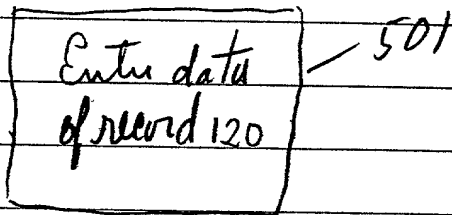 Enter data
of record 120
501